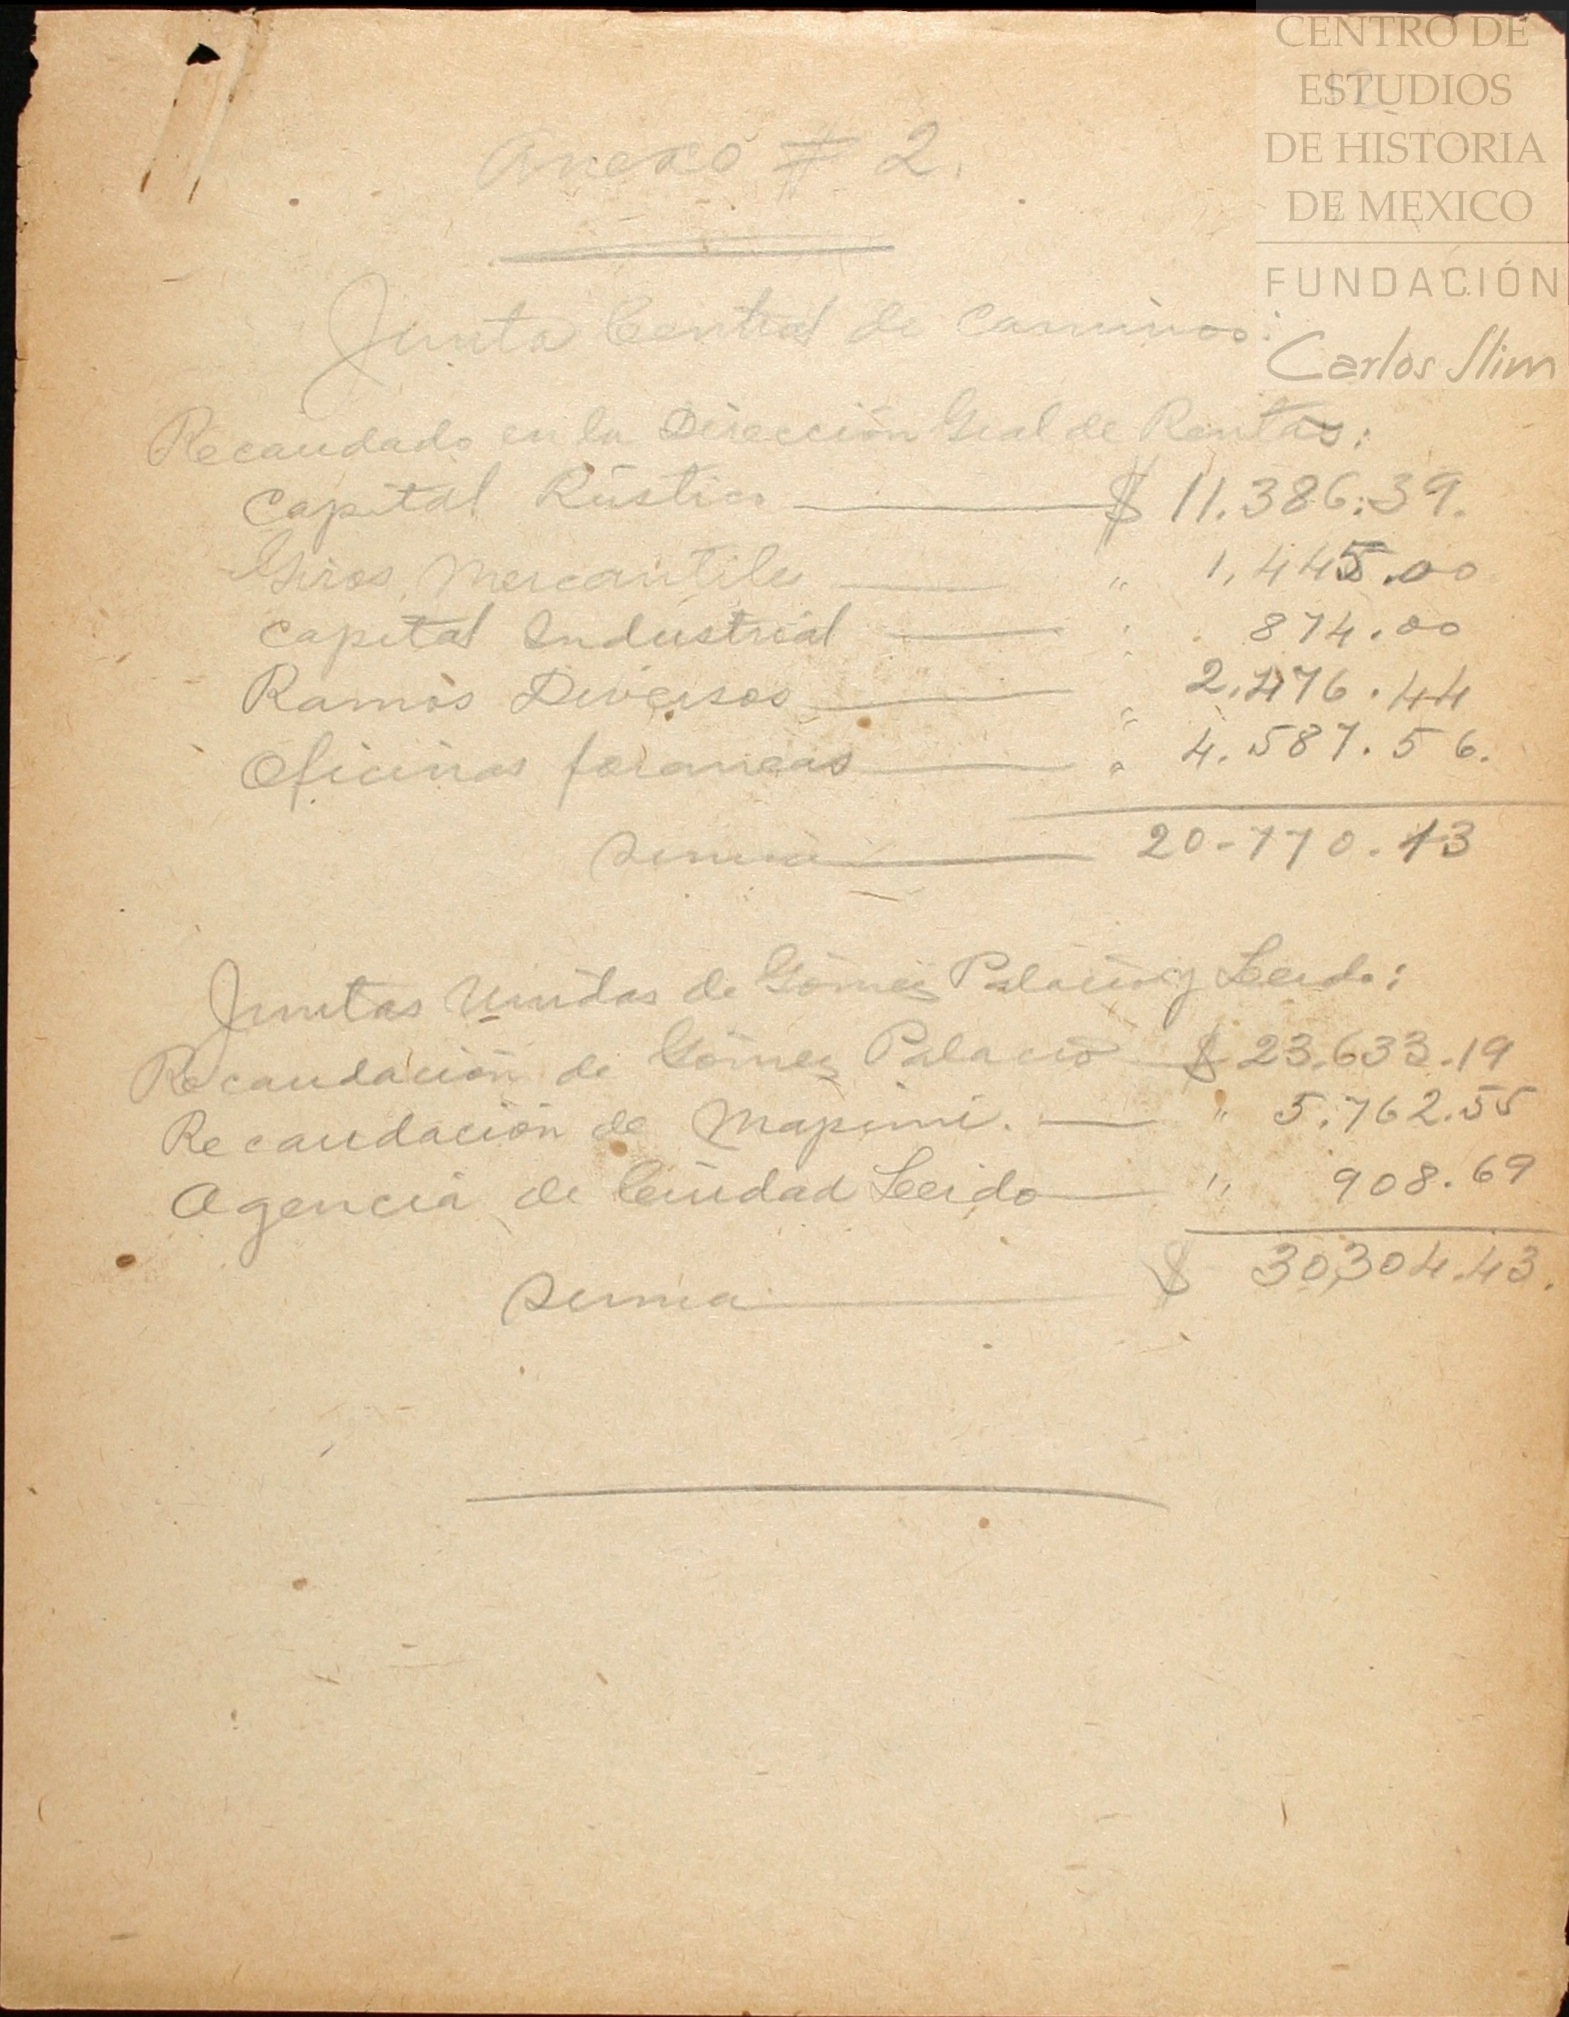 CENTRO DE
ESTUDIOS
DE HISTORIA
DE MEXICO
FUNDACIÓN
Carlos Slim
Anexo # 2.
Junta Central de Caminos:
Recaudado en la Dirección Gral de Rentas:
Capital Rústico $ 11.386.39.
Giros Mercantiles " 1,445.00
Capital Industrial " 874.00
Ramos Diversos " 2.476.44
Oficinas foraneas " 4.587.56.
Suma 20.770.13
Juntas Unidas de Gómez Palacio y Lerdo:
Recaudación de Gómez Palacio $ 23.633.19
Recaudación de Mapimi. " 5.762.55
Agencia de Ciudad Lerdo " 908.69
Suma $ 30,304.43.